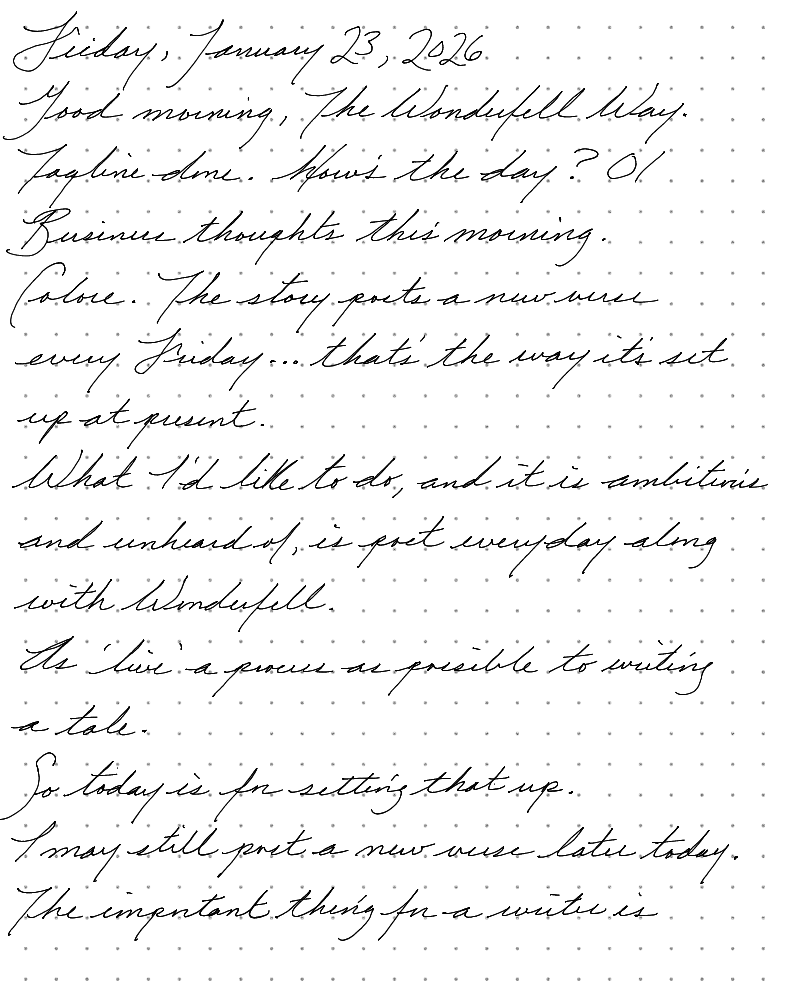 Friday, January 23, 2026
Good morning, The Wonderfell Way.
Tagline done. How's the day? 01
Business thoughts this morning.
Colore. The story posts a new verse
every Friday... that's the way it's set
up at present.
What I'd like to do, and it is ambitious
and unheard of, is post everyday along
with Wonderfell.
As 'live' a process as possible to writing
a tale.
So today is for setting that up.
I may still post a new verse later today.
The important thing for a writer is